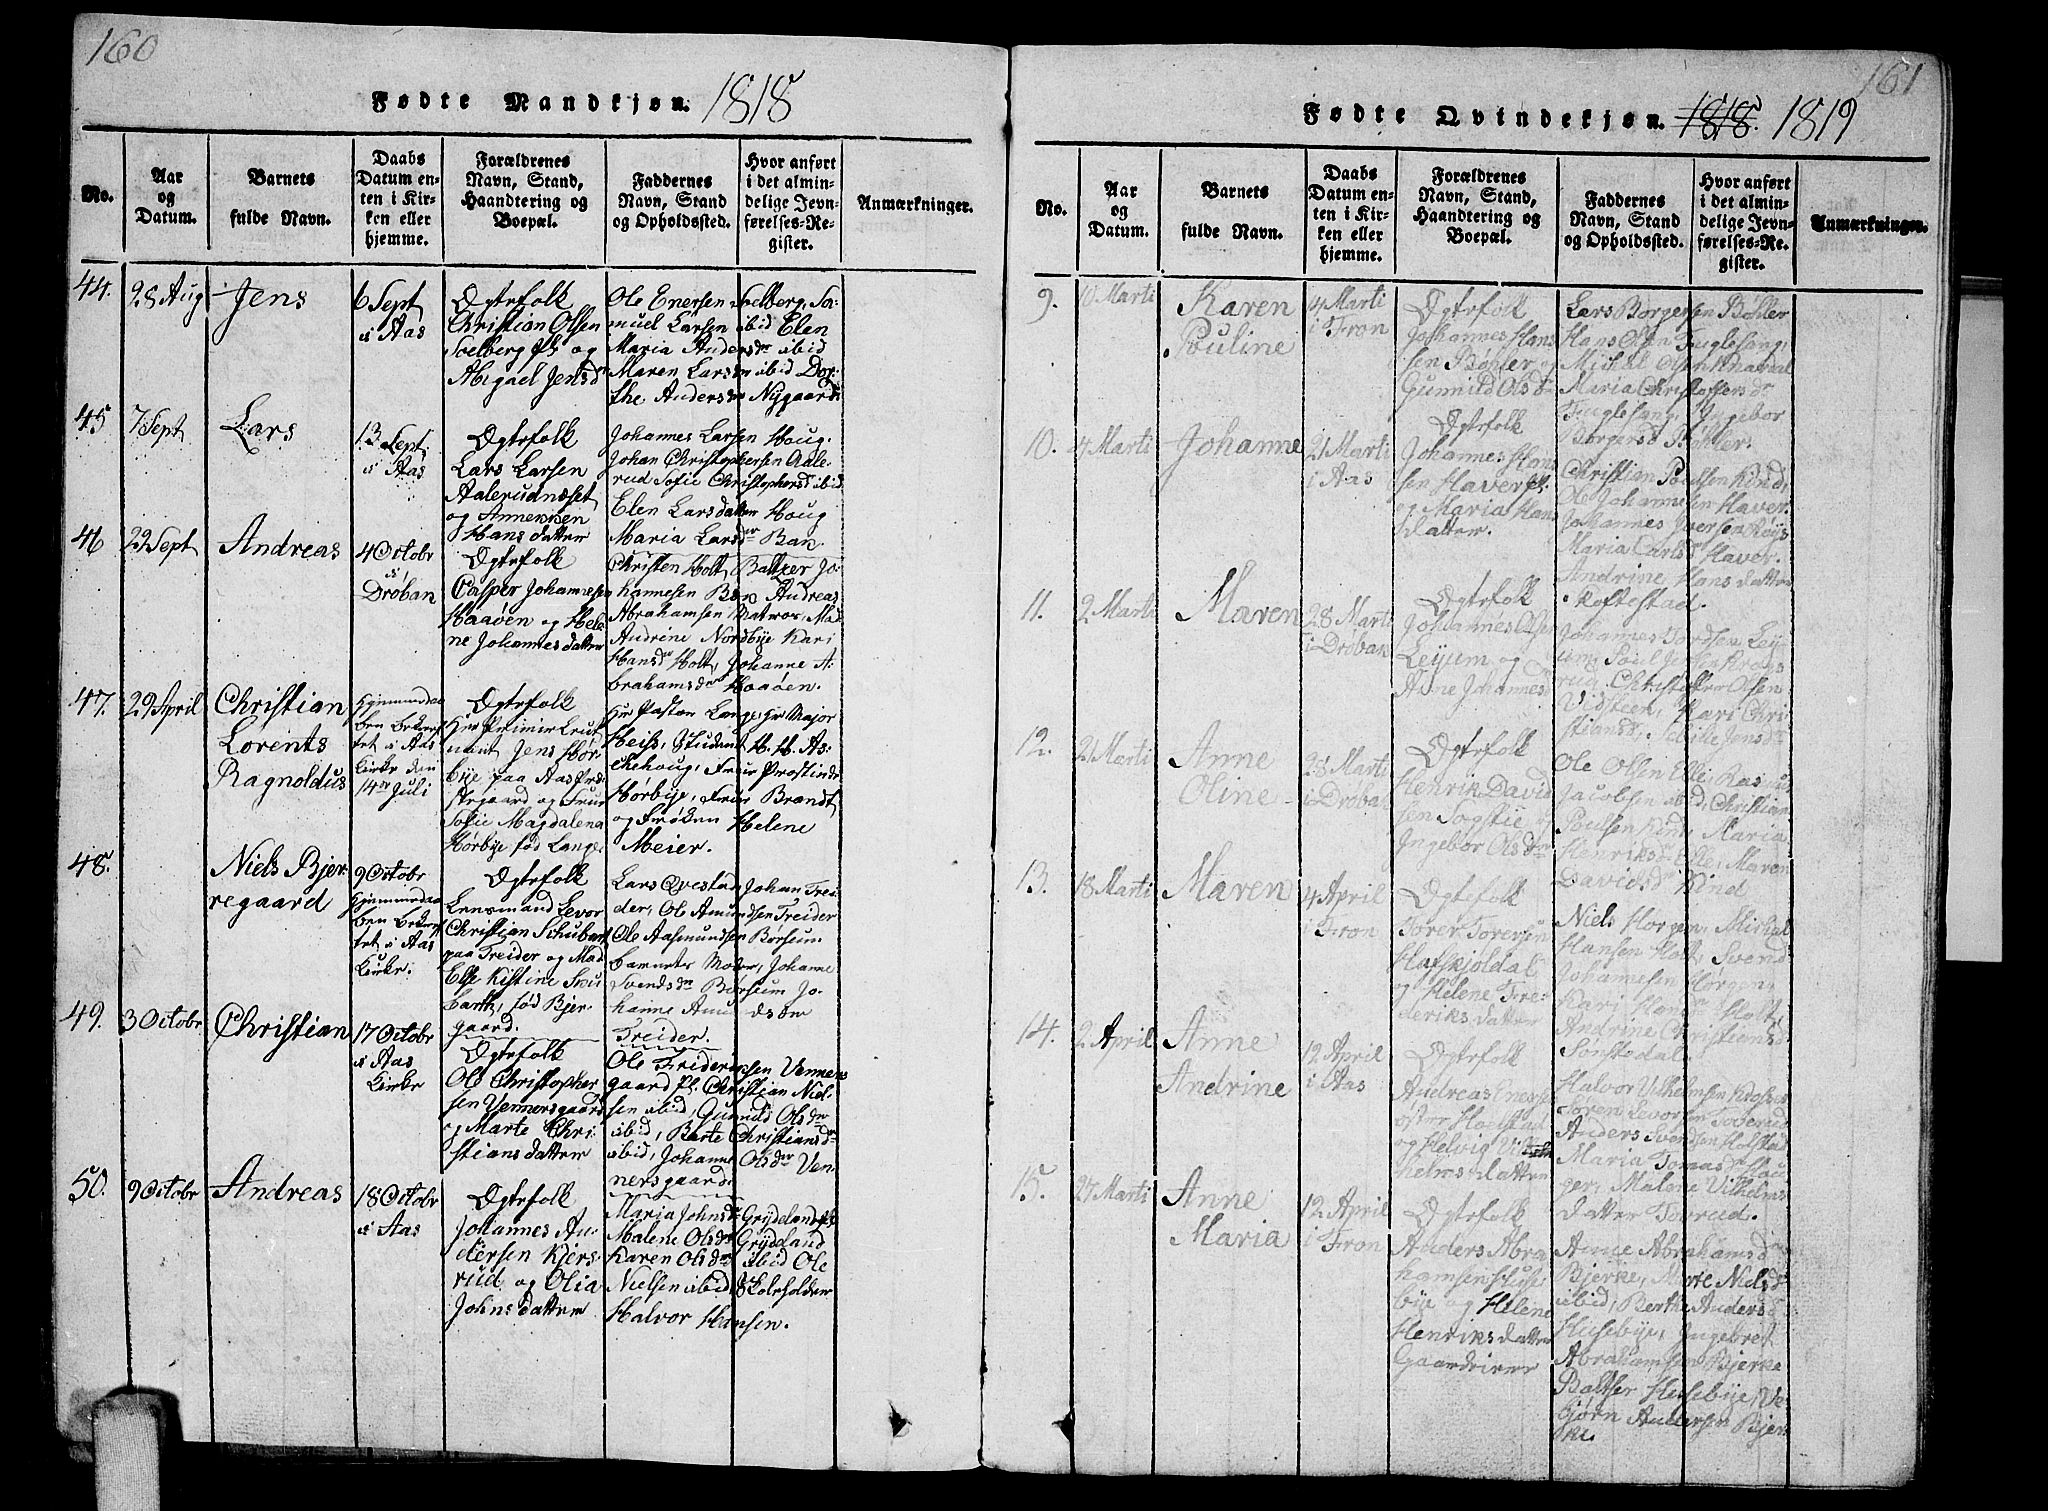 160
Fødte Mandkjøn. 1818
No.
Aar
og
Datum.
Barnets
fulde Navn.
Daabs
Datum en-
ten i Kir-
ken eller
hjemme.
Forældrenes
Navn, Stand,
Haandtering og
Boepæl.
Faddernes
Navn, Stand
og Opholdssted.
Hvor anført
i det almin-
delige Jevn-
førelses-Re-
gister.
Anmærkninger.
44.
28 Aug
Jens
6 Sept
i Aas
Ægtefolk
Christian Olsen
Solberg pl. og
Abigael Jensdr
Ole Enersen Solberg, Sa-
muel Larsen ibid Elen
Maria Andersdr ibid
Maren Larsdr ibid Dor-
the Andersdr Nygaard
45
7 Sept
Lars
13 Sept
i Aas
Ægtefolk
Lars Larsen
Aalerudnæset
og Annekken
Hansdatter
Johannes Larsen Houg
Johan Christophersen Aale-
rud Sofie Christophersd ibid
Elen Larsdatter Houg
Maria Larsdr Ban.
46
29 Sept
Andreas
4 Octobr
i
Drøban
Ægtefolk
Casper Johannesen
Haaøen og Hele
ne Johannesdatter
Christen Holt, Baltzer Jo-
hannesen Andreas
Abrahamsen Matros, Mad
Andrine Nordbye Kari
Hansdr Holt, Johanne A-
brahamsdr Haaøen.
47.
29 April
Christian
Lorents
Ragnoldus
Hjemmedaa-
ben bekræf-
tet i Aas
Kirke den
14de Juli
Ægtefolk
Hr Premier Leut
nant Jens Hør-
bye paa Aas Præ-
stegaard og Frue
Sofie Magdalena
Hørbye fød Lange
Hr Pastor Lange, Hr Major
Heiss, Student H. H. As-
chehoug, Frue Prostinde
Hørbye, Frue Brandt,
og Frøken Helene
Meier.
48.
Niels Bjer-
regaard
9 Octobr
Hjemmedaa-
ben bekræf-
tet i Aas
Kirke.
Ægtefolk
Lensmand Levor
Christian Schubart
paa Treider og Mad
Else Kistine Scu
barth, fød Bjer-
gaard.
Lars Qvestad Johan Trei-
der, Ole Amundsen Treider
Ole Aasmundsen Børsum
barnets Moder, Johanne
Svendsdr Børsum Jo-
hanne Amundsdr
Treider.
49.
3 Octobr
Christian
17 Octobr
i Aas
Kirke
Ægtefolk
Ole Christopher
sen Vennersgaard
og Marte Chri-
stiansdatter
Ole Frideriksen Venners
gaard pl. Christian Niel-
sen ibid, Gunnild Olsdr
ibid, Berte Christiansdr
ibid, Johanne Olsdr Ven-
nersgaard
50.
9 Octobr
Andreas
18 Octobr
i Aas
Ægtefolk
Johannes An-
dersen Kjers-
rud og Olia
Johnsdatter
Maria Johnsdr Grydeland pl.
Malene Olsdr Grydland
Karen Olsdr ibid Ole
Nielsen ibid, Skoleholder
Halvor Hansen.
161
Fødte Qvindekjøn. 1818. 1819
No.
Aar
og
Datum.
Barnets
fulde Navn.
Daabs
Datum en-
ten i Kir-
ken eller
hjemme.
Forældrenes
Navn, Stand,
Haandtering og
Boepæl.
Faddernes
Navn, Stand
og Opholdssted.
Hvor anført
i det almin-
delige Jevn-
førelses-Re-
gister.
Anmærkninger.
9.
10 Marti
Karen
Pouline
14 Marti
i Fron
Ægtefolk
Johannes Hans
sen Bøhler og
Gunnild Olsdr
Lars Borgersen Bøhler
Hans Olsen Fuglesang
Michal Olsen Kharal
Maria Christoffersdr
Fuglesang, Ingebor
Borgersd Bøhler.
10.
4 Marti
Johanne
21 Marti
i Aas
Ægtefolk
Johannes Han
sen Haver pl.
og Maria Hans
datter.
Christian Poulsen Kind,
Ole Johannesen Haver
Johannes Iversen Røys
Maria Carlsd Haver.
Andrine Hansdatter
Skoftestad.
11.
2 Marti
Maren
28 Marti
i Drøban
Ægtefolk
Johannes Olsen
Leyum og
Anne Johannes
Johannes Tordsen Ley-
um, Poul Jensen Krogs
rud, Christoffer Olsen
Vidsteen, Kari Chri-
stiansdr, Jensdr
12.
21 Marti
Anne
Oline
28 Marti
i Drøbak
Ægtefolk
Henrik David
sen Sogstie og
Ingebor Olsdr
Ole Olsen Elle, Rasmus
Jacobsen ibid, Christian
Poulsen Kind, Maria
Henriksdr Elle, Maren
Davidsdr Kind
13.
18 Marti
Maren
4 April
i Fron
Ægtefolk
Torer Torersen
Hafskjoldal
og Helene Fre-
deriksdatter
Niels Horgen, Michal
Hansen Holt, Svend
Johannesen Hørgen,
Kari Hansdr Holt,
Andrine Christiansd
Sønstedal.
14.
2 April
Anne
Andrine
12 April
i Aas
Ægtefolk
Andreas Enersen
øster Hoelstad
og Helvig Vil
helmsdatter
Halvor Vilhelmsen Krosser
Søren Levorsen Toverud
Anders Svendsen Holstad
Maria Tomasdr Hau-
ger, Malene Vilhelms
datter Toverud.
15.
27 Marti
Anne
Maria
12 April
i Fron
Ægtefolk
Anders Abra
hamsen Huse-
bye og Helene
Henriksdatter
Gaardbruger
Anne Abrahamsdr
Bjerke, Marte Nielsd
ibid, Berthe Andersd
Husebye, Ingebret
Abrahamsen Bjerke
Baltser Husebye, Ve-
bjørn Andersen Bjer
ke.